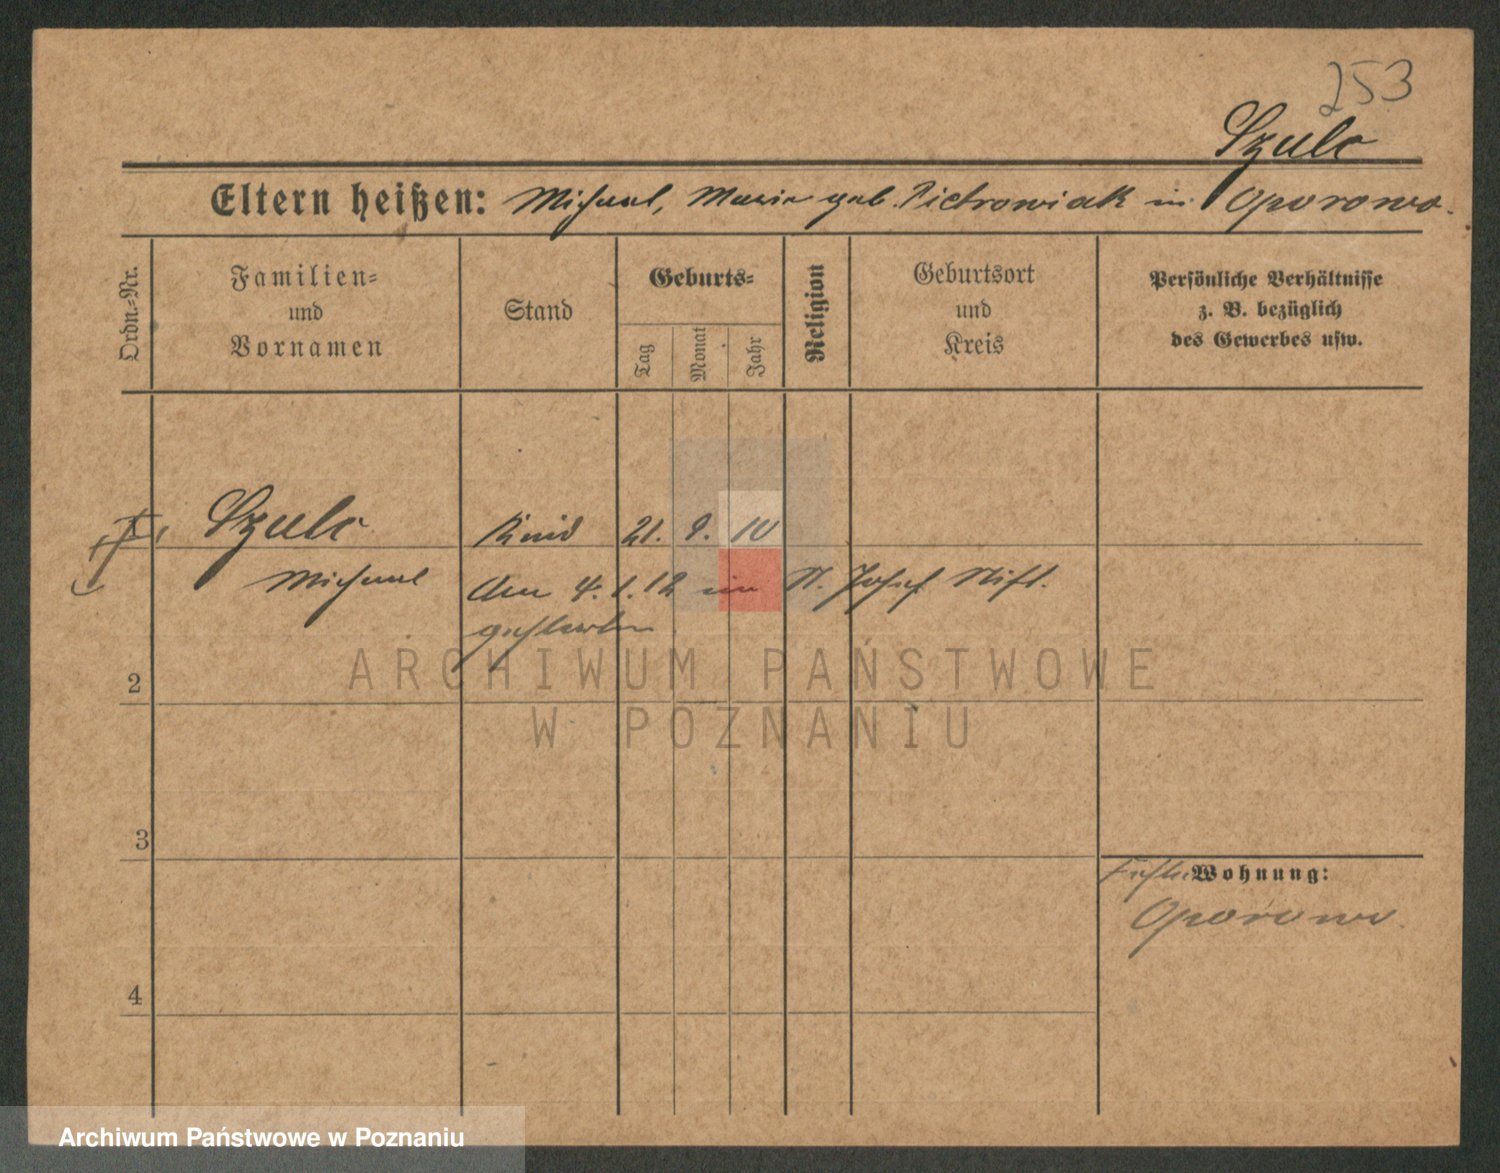 253
Szulc
Eltern heißen: Michael, Marie geb. Pietrowiak in Oporowo.
Ordn.-Nr.
Familien-
und
Vornamen
Stand
Geburts-
Tag
Monat
Jahr
Religion
Geburtsort
und
Kreis
Persönliche Verhältnisse
z. B. bezüglich
des Gewerbes usw.
Szulc Kind 21. 9. 10
Michael Am 4. 1. 12 im St. Josef Stift.
gestorben
ARCHIWUM PAŃSTWOWE
W POZNANIU
2
3
Wohnung:
Oporowo.
4
Archiwum Państwowe w Poznaniu